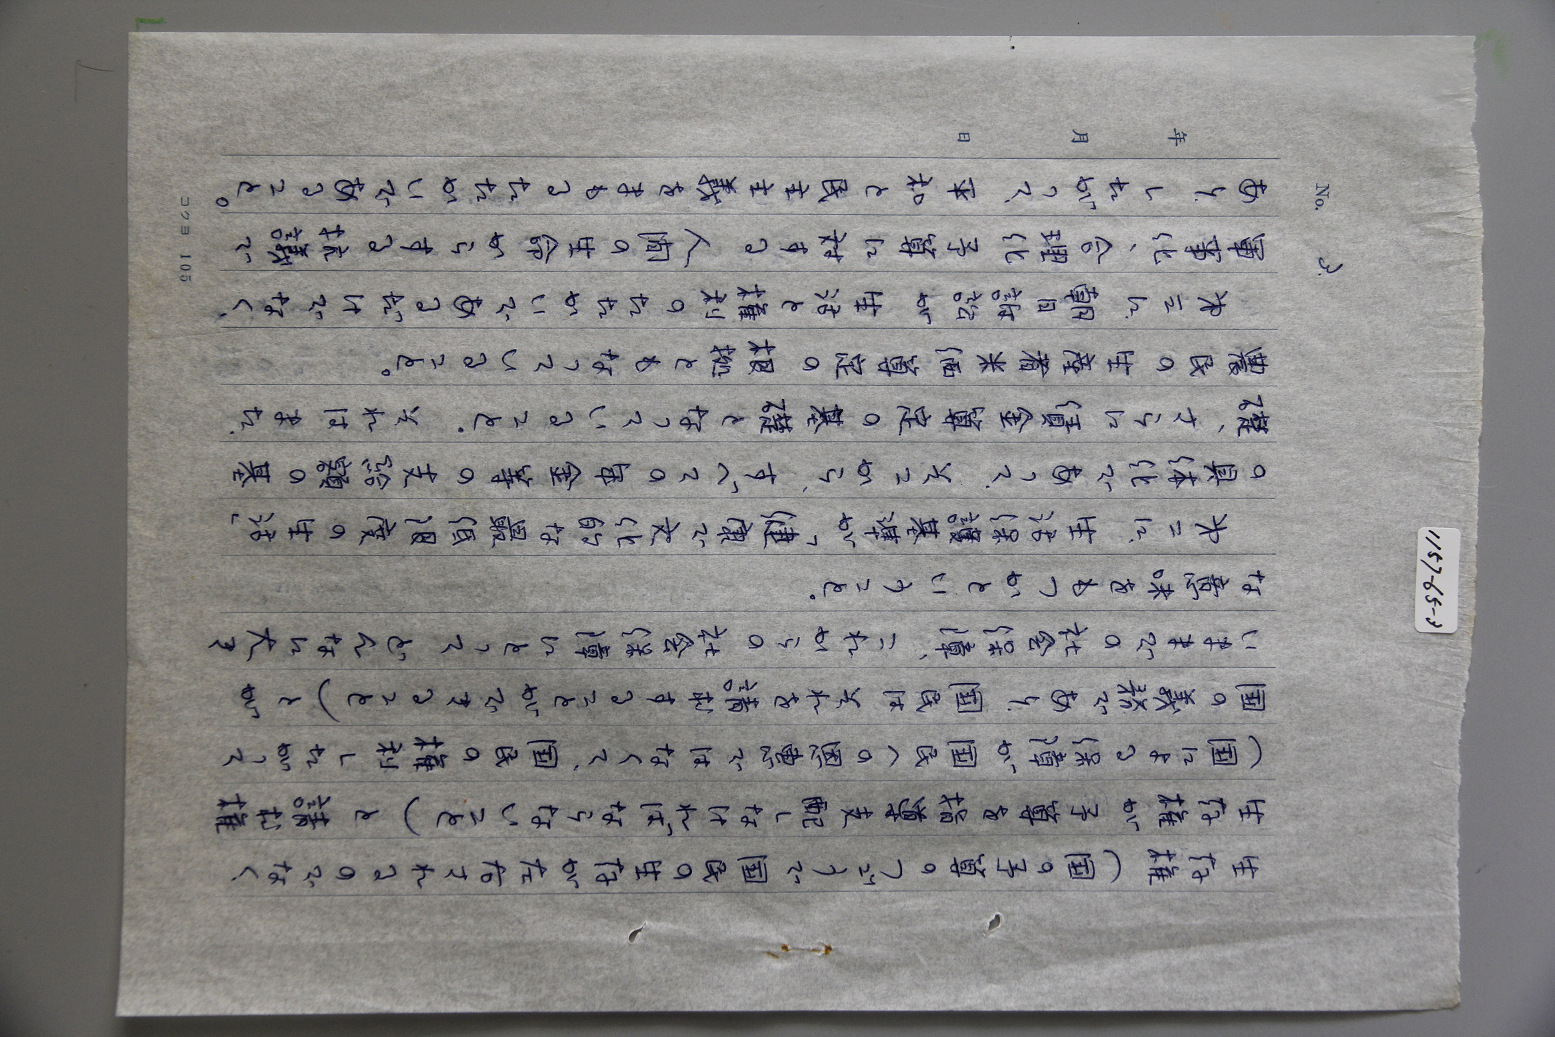 No. 3.
生存権(国の予算のつごうで国民の生存が左右されるのでなく、
生存権が予算を指導支配しなければならないこと)と請求権
(国による保障が国民への恩恵ではなくて、国民の権利したがって
国の義務であり、国民はそれを請求することができること)とが
いままでの社会保障、これからの社会保障にとってどんなに大き
な意味をもつかということ。
オ二に、生活保護基準が「健康で文化的な最低限度の生活」
の具体化であって、そこから、すべての年金等の支給額の基
礎、さらに賃金算定の基礎となっていること。それはまた、
農民の生産者米価算定の根拠ともなっていること。
オ三に、朝日訴訟が生活と権利のたたかいであるだけでなく、
軍事化、合理化予算に対する人間の生命からする抗議で
あり、したがって、平和と民主主義をまもるたたかいであること。
年 月 日
コクヨ 105
1157-65-3